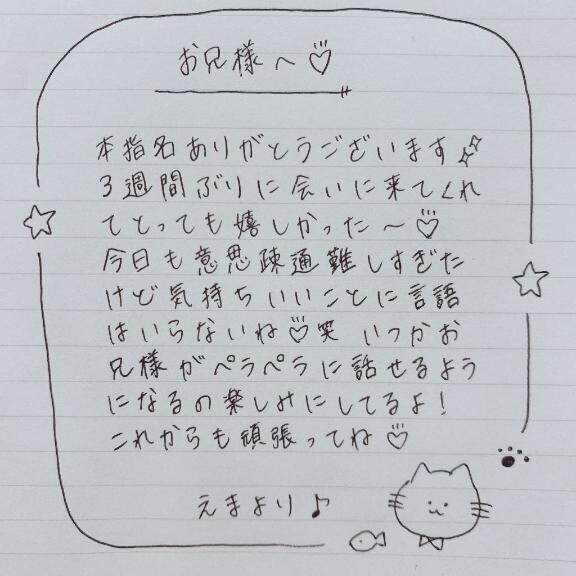 お兄様へ♡
本指名ありがとうございます
3週間ぶりに会いに来てくれ
てとっても嬉しかった〜♡
今日も意思疎通難しすぎた
けど気持ちいいことに言語
はいらないね♡笑 いつかお
兄様がペラペラに話せるよう
になるの楽しみにしてるよ!
これからも頑張ってね♡
えまより♪